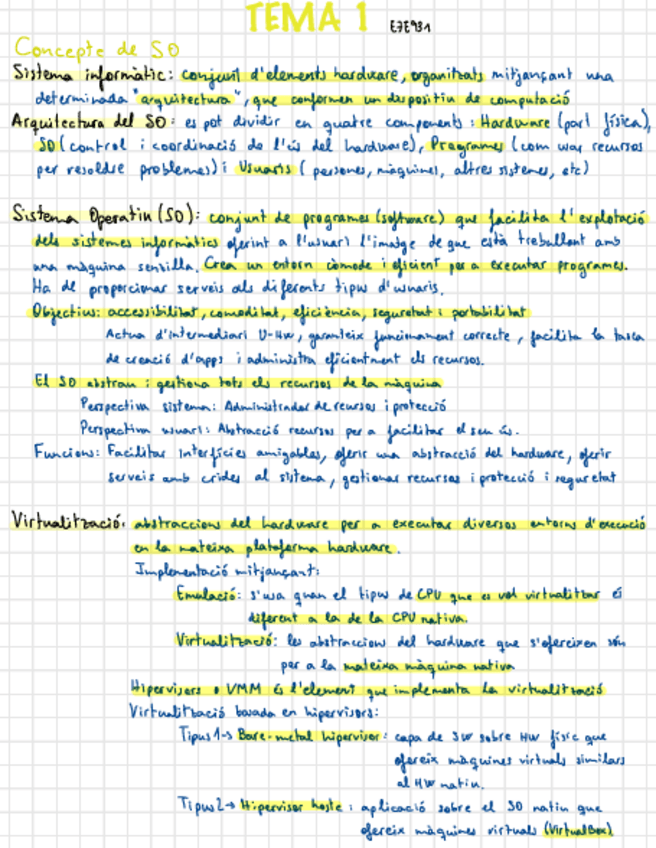 TEMA 1 E7E931
Concepte de SO
Sistema informàtic: conjunt d'elements hardware, organitzats mitjançant una
determinada "arquitectura", que conformen un dispositiu de computació
Arquitectura del SO: es pot dividir en quatre components: Hardware (part física),
SO (control i coordinació de l'ús del hardware), Programes (com usar recursos
per resoldre problemes) i Usuaris (persones, màquines, altres sistemes, etc)
Sistema Operatiu (SO): conjunt de programes (software) que facilita l'explotació
dels sistemes informàtics oferint a l'usuari l'imatge de que està treballant amb
una màquina senzilla. Crea un entorn còmode i eficient per a executar programes.
Ha de proporcionar serveis als diferents tipus d'usuaris.
Objectius: accessibilitat, comoditat, eficiència, seguretat i portabilitat
Actua d'intermediari U-HW, garanteix funcionament correcte, facilita la tasca
de creació d'apps i administra eficientment els recursos.
El SO abstrau i gestiona tots els recursos de la màquina
Perspectiva sistema: Administrador de recursos i protecció
Perspectiva usuari: Abstracció recursos per a facilitar el seu ús.
Funcions: Facilitar interfícies amigables, oferir una abstracció del hardware, oferir
serveis amb crides al sistema, gestionar recursos i protecció i seguretat
Virtualització: abstraccions del hardware per a executar diversos entorns d'execució
en la mateixa plataforma hardware.
Implementació mitjançant:
Emulació: s'usa quan el tipus de CPU que es vol virtualitzar és
diferent a la de la CPU nativa.
Virtualització: les abstraccions del hardware que s'ofereixen són
per a la mateixa màquina nativa
Hipervisors o VMM és l'element que implementa la virtualització
Virtualització basada en hipervisors:
Tipus 1→ Bare-metal hipervisor: capa de SW sobre HW físic que
ofereix màquines virtuals similars
al HW natiu.
Tipus 2→ Hipervisor hoste: aplicació sobre el SO natiu que
ofereix màquines virtuals (VirtualBox)